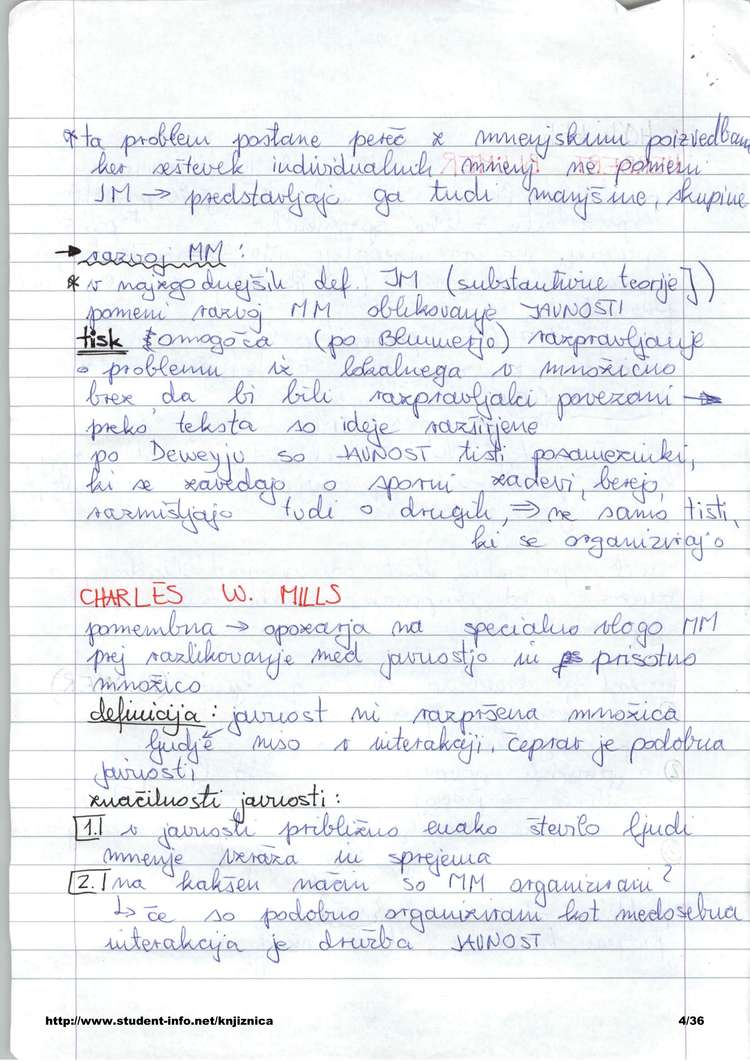 * ta problem postane pereč z mnenjskimi poizvedbam
ker seštevek individualnih mnenj ne pomeni
JM → predstavljajo ga tudi manjšine, skupine
→ razvoj MM :
* v najzgodnejših def. JM (substantivne teorije])
pomeni razvoj MM oblikovanje JAVNOSTI
tisk omogoča (po Blumerjo) razpravljanje
o problemu iz lokalnega v množično
brez da bi bili razpravljalci povezani →
preko teksta so ideje razširjene
po Deweyju so JAVNOST tisti posamezniki,
ki se zavedajo o sporni zadevi, berejo,
razmišljajo tudi o drugih, ⇒ ne samo tisti,
ki se organizirajo
CHARLES W. MILLS
pomembna → opozarja na specialno vlogo MM
prej razlikovanje med javnostjo in prisotno
množico
definicija : javnost ni razpršena množica
ljudje niso v interakciji, čeprav je podobna
javnosti
značilnosti javnosti :
1. v javnosti približno enako število ljudi
mnenje izraža in sprejema
2. na kakšen način so MM organizirani ?
↳ če so podobno organizirani kot medosebna
interakcija je družba JAVNOST
http://www.student-info.net/knjiznica 4/36